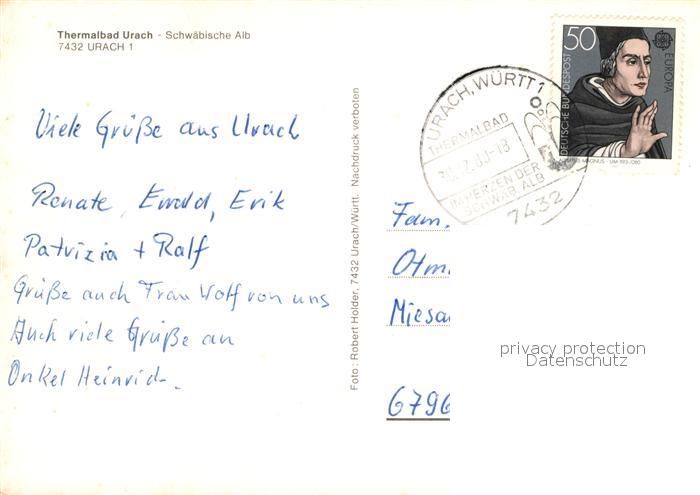 Thermalbad Urach - Schwäbische Alb
7432 URACH 1
Viele Grüße aus Urach
Renate, Ewald, Erik
Patrizia + Ralf
Grüße auch Frau Wolf von uns
Auch viele Grüße an
Onkel Heinrich.
Foto: Robert Holder, 7432 Urach/Württ. Nachdruck verboten
URACH, WÜRTT 1
THERMALBAD
-18
IM HERZEN DER
SCHWÄB. ALB
7432
50
DEUTSCHE BUNDESPOST
EUROPA
MAGNUS · UM 1193-1280
Fam.
Otm
Miesa
6796
privacy protection
Datenschutz